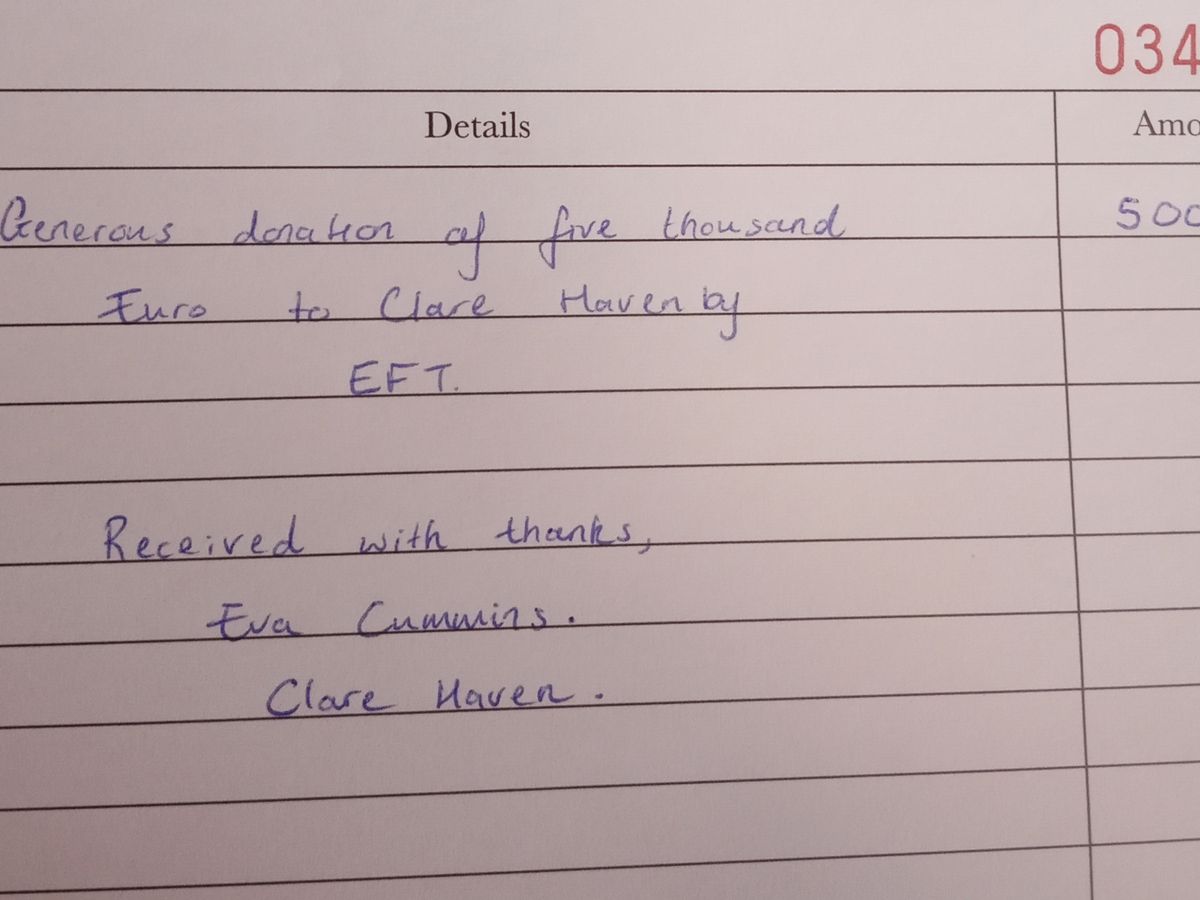 034
Details Amo
Generous donation of five thousand 500
Euro to Clare Haven by
EFT.
Received with thanks,
Eva Cummins.
Clare Haven.